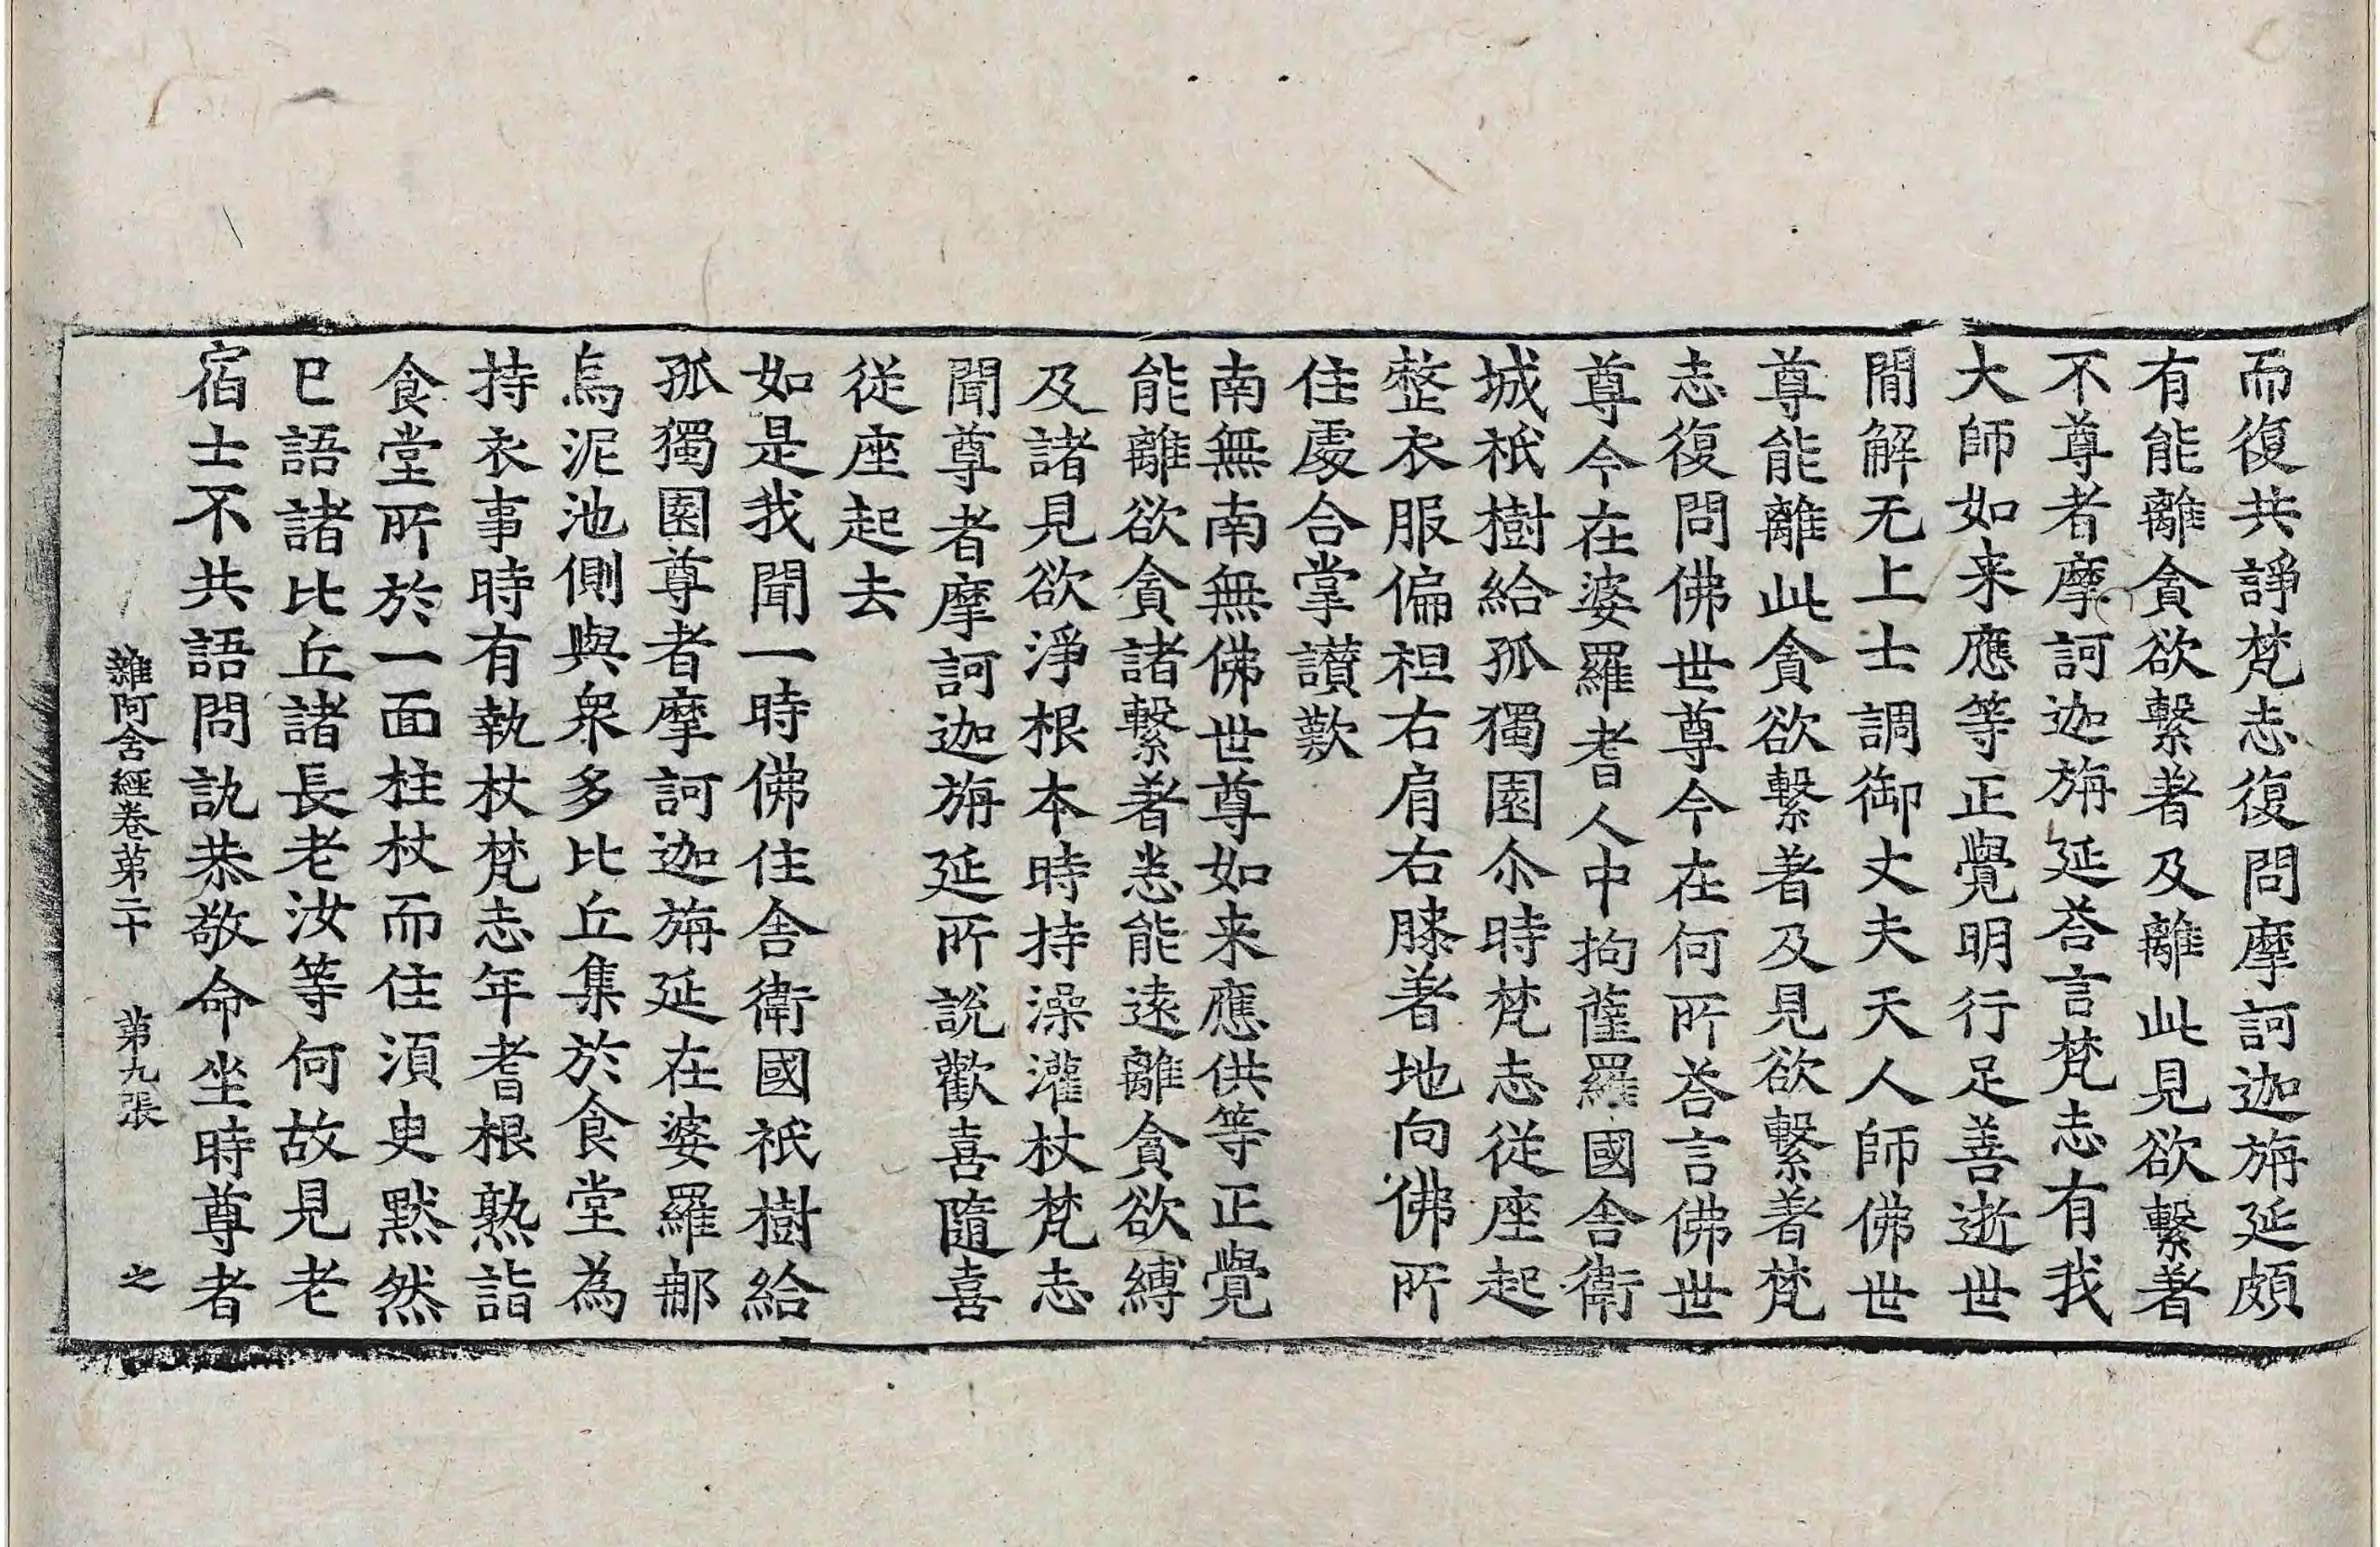 而復共諍梵志復問摩訶迦旃延頗
有能離貪欲繫著及離此見欲繫著
不尊者摩訶迦旃延荅言梵志有我
大師如来應等正覺明行足善逝世
閒解无上士調御丈夫天人師佛世
尊能離此貪欲繫著及見欲繫著梵
志復問佛世尊今在何所荅言佛世
尊今在婆羅耆人中拘薩羅國舍衛
城祇樹給孤獨園尒時梵志從座起
整衣服偏袒右肩右膝著地向佛所
住處合掌讃歎
南無南無佛世尊如来應供等正覺
能離欲貪諸繫著悉能遠離貪欲縛
及諸見欲淨根本時持澡灌杖梵志
聞尊者摩訶迦旃延所說歡喜隨喜
從座起去
如是我聞一時佛住舍衛國祇樹給
孤獨園尊者摩訶迦旃延在婆羅那
烏泥池側與衆多比丘集於食堂為
持衣事時有執杖梵志年耆根熟詣
食堂所於一面柱杖而住須臾黙然
已語諸比丘諸長老汝等何故見老
宿士不共語問訊恭敬命坐時尊者
雜阿含經卷第二十　第九張　之